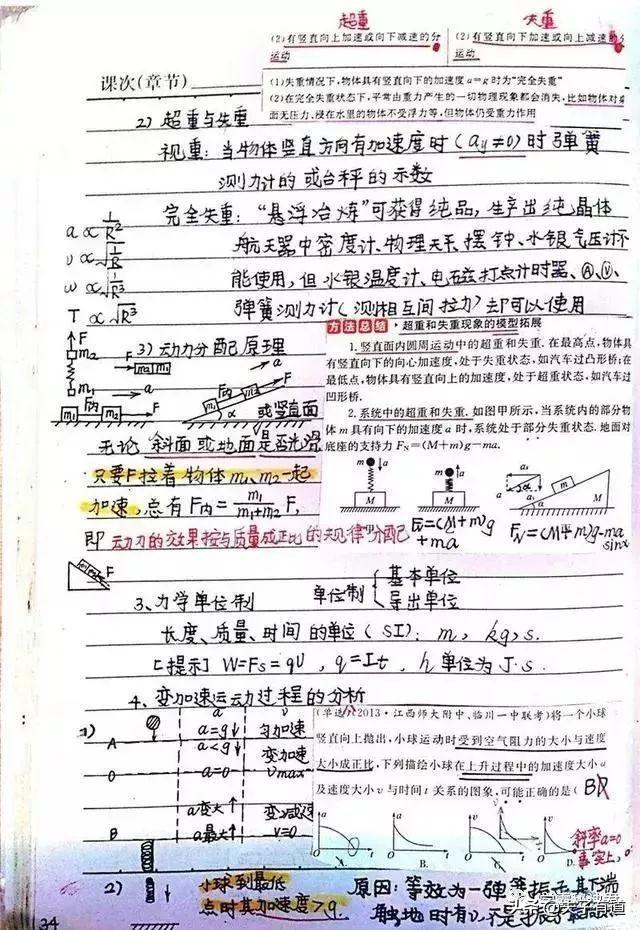 超重
失重
(2)有竖直向上加速或向下减速的分
运动
(2)有竖直向下加速或向上减速的分
运动
课次(章节)
(1)失重情况下,物体具有竖直向下的加速度a=g时为“完全失重”
(2)在完全失重状态下,平常由重力产生的一切物理现象都会消失,比如物体对桌
面无压力、浸在水里的物体不受浮力等,但物体仍受重力作用
2) 超重与失重
视重: 当物体竖直方向有加速度时(ay≠0)时弹簧
测力计的或台秤的示数
完全失重: “悬浮冶炼”可获得纯品, 生产出纯晶体
a∝1/R²
v∝√1/R
ω∝√1/R³
T∝√R³
航天器中密度计、物理天平、摆钟、水银气压计不
能使用, 但水银温度计、电磁打点计时器、Ⓐ、Ⓥ、
弹簧测力计(测相互间拉力)却可以使用
方法总结·超重和失重现象的模型拓展
1.竖直面内圆周运动中的超重和失重.在最高点,物体具
有竖直向下的向心加速度,处于失重状态,如汽车过凸形桥;在
最低点,物体具有竖直向上的加速度,处于超重状态,如汽车过
凹形桥.
2.系统中的超重和失重.如图甲所示,当系统内的部分物
体m具有向下的加速度a时,系统处于部分失重状态.地面对
底座的支持力FN=(M+m)g-ma.
3) 动力分配原理
F
m2
a
m1
F
m2 m1
a
m1 F内 m2 F
m1 F内 m2 F a
α
或竖直面
无论 斜面或地面是否光滑
只要F拉着物体m1、m2一起
加速, 总有 F内=m1/(m1+m2) F,
即 动力的效果按与质量成正比的规律分配
m a
M
甲
m a
M
FN=(M+m)g
+ma
a
m
α
M
FN=(M+m)g-ma
sinα
F
3、力学单位制
单位制
基本单位
导出单位
长度、质量、时间的单位(SI): m, kg, s.
[提示] W=Fs=qU, q=It, h单位为J·s.
4、变加速运动过程的分析
1)
a
v
a=g↓
匀加速
A
a<g↓
变加速
O
a=0
vmax
a变大↑
变减速
B
a最大↑
v=0
(单选)(2013·江西师大附中、临川一中联考)将一个小球
竖直向上抛出,小球运动时受到空气阻力的大小与速度
大小成正比,下列描绘小球在上升过程中的加速度大小a
及速度大小v与时间t关系的图象,可能正确的是(
B
a
O
t
A.
B.
C.
D.
斜率a=0
事实上,
2)
小球到最低
点时其加速度>g.
原因: 等效为一弹簧振子其下端
触地时有v,不是振子最
34